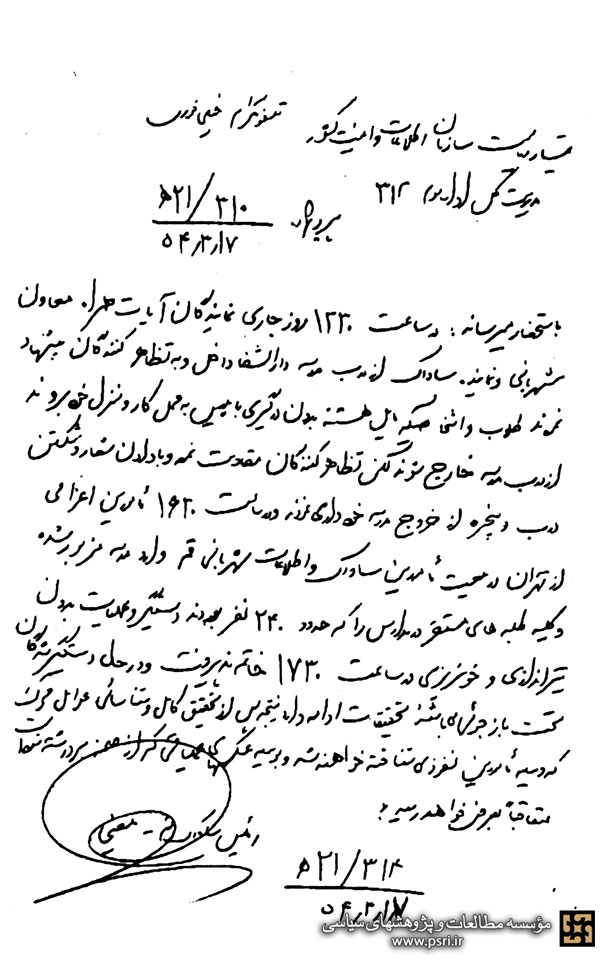 تلفونگرام خیلی فوری
تیمسار ریاست سازمان اطلاعات و امنیت کشور
مدیریت کل اداره سوم ۳۱۲
پیرو ۲۱/۳۱۰ﻫ
۵۴/۳/۱۷
باستحضار میرساند: در ساعت ۱۲۳۰ روز جاری نمایندگان آیات معاون
شهربانی و نماینده ساواک از درب مدرسه دارالشفا داخل و به تظاهر کنندگان پیشنهاد
نمودند طلاب و اشخاصیکه مایل هستند بدون درگیری با پلیس به محل کار و منزل خود بروند
از درب مدرسه خارج شوند لکن تظاهر کنندگان مقاومت نموده و با دادن شعار و شکستن
درب و پنجره از خروج مدرسه خودداری نمودند در ساعت ۱۶۲۰ مأمورین اعزامی
از تهران در معیت مأمورین ساواک و اطلاعات شهربانی قم وارد مدرسه مزبور شده
و کلیه طلبه های مستقر در مدارس را که حدود ۲۴۰ نفر بودند دستگیر و عملیات بدون
تیراندازی و خونریزی در ساعت ۱۷۳۰ خاتمه پذیرفت و در حال از دستگیرشدگان
تحت بازجوئی میباشند تحقیقات ادامه دارد نتیجه پس از تحقیق کامل و شناسائی عوامل محرک
که وسیله مأمورین نفوذی شناخته خواهند شد و بوسیله عکسهای که از برداشته شده است
متعاقباً بعرض خواهد رسید.
رئیس ساواک قم - معینی
۲۱/۳۱۴ﻫ
۵۴/۳/۱۷
مؤسسه مطالعات و پژوهشهای سیاسی
www.psri.ir